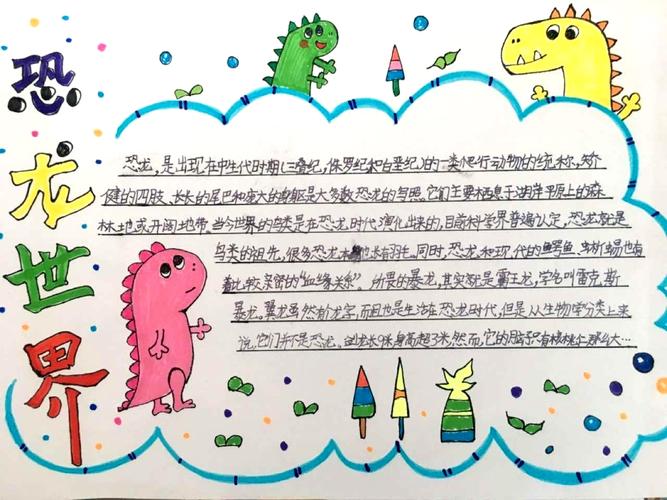 恐龙世界
恐龙，是出现在中生代时期(三叠纪，侏罗纪和白垩纪)的一类爬行动物的统称，矫
健的四肢、长长的尾巴和庞大的身躯是大多数恐龙的写照。它们主要栖息于湖岸平原上的森
林地或开阔地带。当今世界的鸟类是在恐龙时代演化出来的，目前科学界普遍认定，恐龙就是
鸟类的祖先，很多恐龙也长有羽毛。同时，恐龙和现代的鳄鱼、蜥蜴也有
着比较亲密的“血缘关系”。所畏的暴龙，其实就是霸王龙，学名叫雷克斯
暴龙。翼龙虽然有龙字，而且也是生活在恐龙时代，但是从生物学分类上来
说，它们并不是恐龙。剑龙长9米身高超3米，然而，它的脑子只有核桃仁那么大…